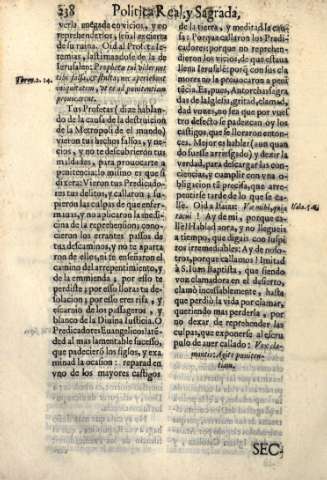 238 Politica Real, y Sagrada,
verla anegada en vicios, y no
reprehenderlos, señal es cierta
de su ruina. Oid al Profeta Ie-
remias, lastimandose de la de
Ierusalen: Prophetæ tui viderunt
tibi falsa, & stulta, nec aperiebant
iniquitatem, ut te ad pœnitentiam
provocarent.
Tus Profetas (dize hablan-
do de la causa de la destruicion
de la Metropoli de el mundo)
vieron tus hechos falsos, y ne-
cios, y no te descubrieron tus
maldades, para provocarte a
penitencia: lo mismo es que si
dixera: Vieron tus Predicado-
res tus delitos, y callaron: su-
pieron las culpas de que enfer-
mas, y no aplicaron la medi-
cina de la reprehension; cono-
cieron los errantes passos de
tus descaminos, y no te aparta-
ron de ellos, ni te enseñaron el
camino del arrepentimiento, y
de la enmienda; por esso te
perdiste; por esso lloras tu de-
solacion; por esso eres risa, y
escarnio de los passageros, y
blanco de la Divina Iusticia. O
Predicadores Euangelicos! aten-
ded al mas lamentable sucesso,
que padecieron los siglos, y exa-
minad la ocasion: reparad en
vno de los mayores castigos
de la tierra, y meditad la cau-
sa: Porque callaron los Predi-
cadores: porque no reprehen-
dieron los vicios, de que estaua
llena Ierusalen: porque con sus cla-
mores no la provocaron a peni-
tencia. Ea, pues, Antorchas sagra-
das de la Iglesia, gritad, clamad,
dad vozes, no sea que por vues-
tro defecto se padezcan oy los
castigos, que se lloraron enton-
ces. Mejor es hablar (aun quan-
do fuesse arriesgado) y dezir la
verdad, para descargar las con-
ciencias, y cumplir con vna o-
bligacion tã precisa, que arre-
pentirse tarde de lo que se ca-
lle. Oid a Isaias: Væ mihi, quia
tacui! Ay de mi, porque ca-
lle! Hablad aora, y no llegueis
a tiempo, que digais con suspi-
ros irremediables: Ay de noso-
tros, porque callamos! Imitad
à S. Iuan Baptista, que siendo
voz clamadora en el desierto,
clamò incessablemente, hasta
que perdiò la vida por clamar,
queriendo mas perderla, por
no dexar de reprehender las
culpas, que exponerse al escru-
pulo de auer callado: Vox cla-
mantis: Agite pœniten-
tiam.
SEC-